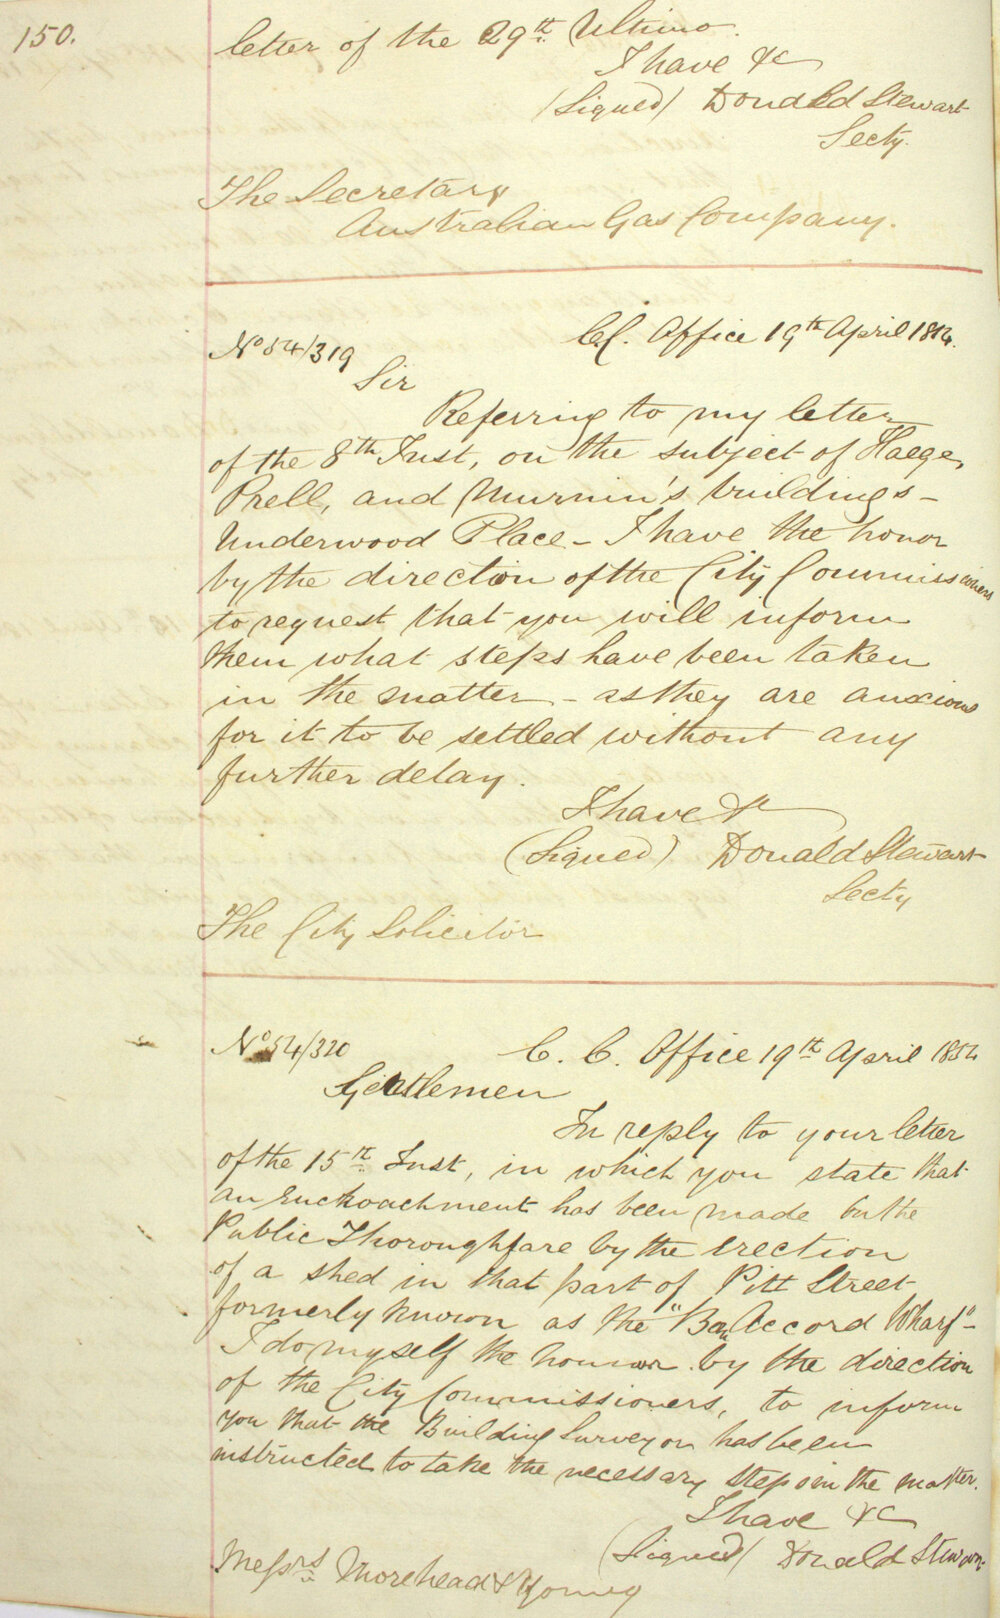 150.
letter of the 29th Ultimo.
I have &c
(Signed) Donald Stewart
Secty.
The Secretary
Australian Gas Company.
No 54/319
C.C. Office 19th April 1854.
Sir
Referring to my letter
of the 8th Inst, on the subject of Haege,
Prell, and Murnin's buildings -
Underwood Place - I have the honor
by the direction of the City Commissioners
to request that you will inform
them what steps have been taken
in the matter - as they are anxious
for it to be settled without any
further delay.
I have &c
(Signed) Donald Stewart
Secty
The City Solicitor
No 54/320
C. C. Office 19th April 1854
Gentlemen
In reply to your letter
of the 15th Inst, in which you state that
an Enchoachment has been made on the
Public Thoroughfare by the erection
of a shed in that part of Pitt Street
formerly known as the "Bon Accord Wharf" -
I do myself the honour by the direction
of the City Commissioners, to inform
you that the Building Surveyor has been
instructed to take the necessary steps in the matter.
I have &c
(Signed) Donald Stewart
Messrs Morehead & Young